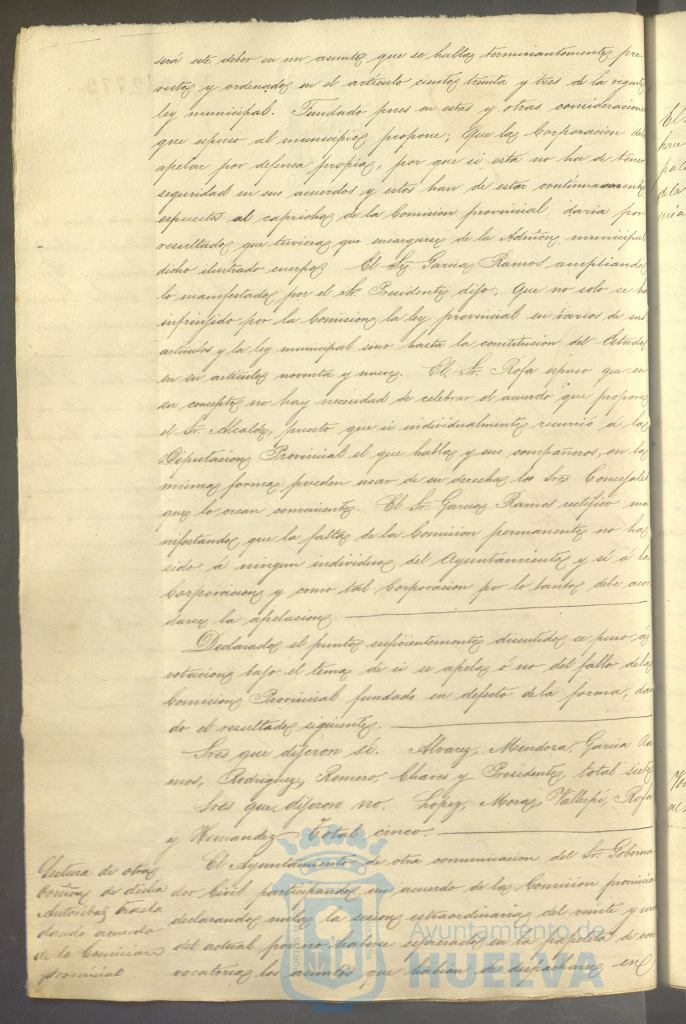 será este deber en un asunto que se halla terminantemente pre-
visto y ordenado en el artículo ciento treinta y tres de la vigente
ley municipal. Fundado pues en estas y otras consideraciones
que espuso al municipio propone; Que la Corporacion debe
apelar por defensa propia, por que si esta no ha de tener
seguridad en sus acuerdos y estos han de estar continuamente
espuestos al capricho de la Comision provincial, daria por
resultado que tuviera que encargarse de la Admon municipal
dicho ilustrado cuerpo. El Sr Garcia Ramos ampliando
lo manifestado por el Sr. Presidente dijo. Que no solo se ha
infrinjido por la Comision la ley provincial en varios de sus
artículos y la ley municipal sino hasta la constitucion del Estado
en su artículo noventa y nueve. El Sr. Rofa espuso que en
su concepto no hay necesidad de celebrar el acuerdo que propone
el Sr. Alcalde, puesto que si individualmente recurrió á la
Diputacion Provincial el que habla y sus compañeros, en la
misma forma pueden usar de su derecho los Sres Concejales
que lo crean conveniente. El Sr Garcia Ramos rectificó ma-
nifestando que la falta de la Comision permanente no ha
sido á ningun individuo del Ayuntamiento y sí á la
Corporacion y como tal Corporacion por lo tanto debe acor-
darse la apelacion.
Declarado el punto suficientemente discutido se puso á
votacion bajo el tema de si se apela ó no del fallo de la
Comision Provincial fundado en defecto de la forma, dan-
do el resultado siguiente.
Sres que dijeron sí. Alvarez, Mendoza, Garcia Ra-
mos, Rodriguez, Romero, Chaves y Presidente, total siete
Sres que dijeron no. Lopez, Mora, Vallespí, Rofa
y Hernandez Total cinco.
Lectura de otra
comon de dicha
Autoridad trasla-
dando acuerdo
de la Comision
provincial
El Ayuntamiento de otra comunicacion del Sr. Goberna-
dor Civil participando un acuerdo de la Comision provincial
declarando nula la sesion extraordinaria del veinte y uno
del actual por no haberse espresado en la papeleta de con-
vocatoria los asuntos que habian de despacharse en
Ayuntamiento de
HUELVA